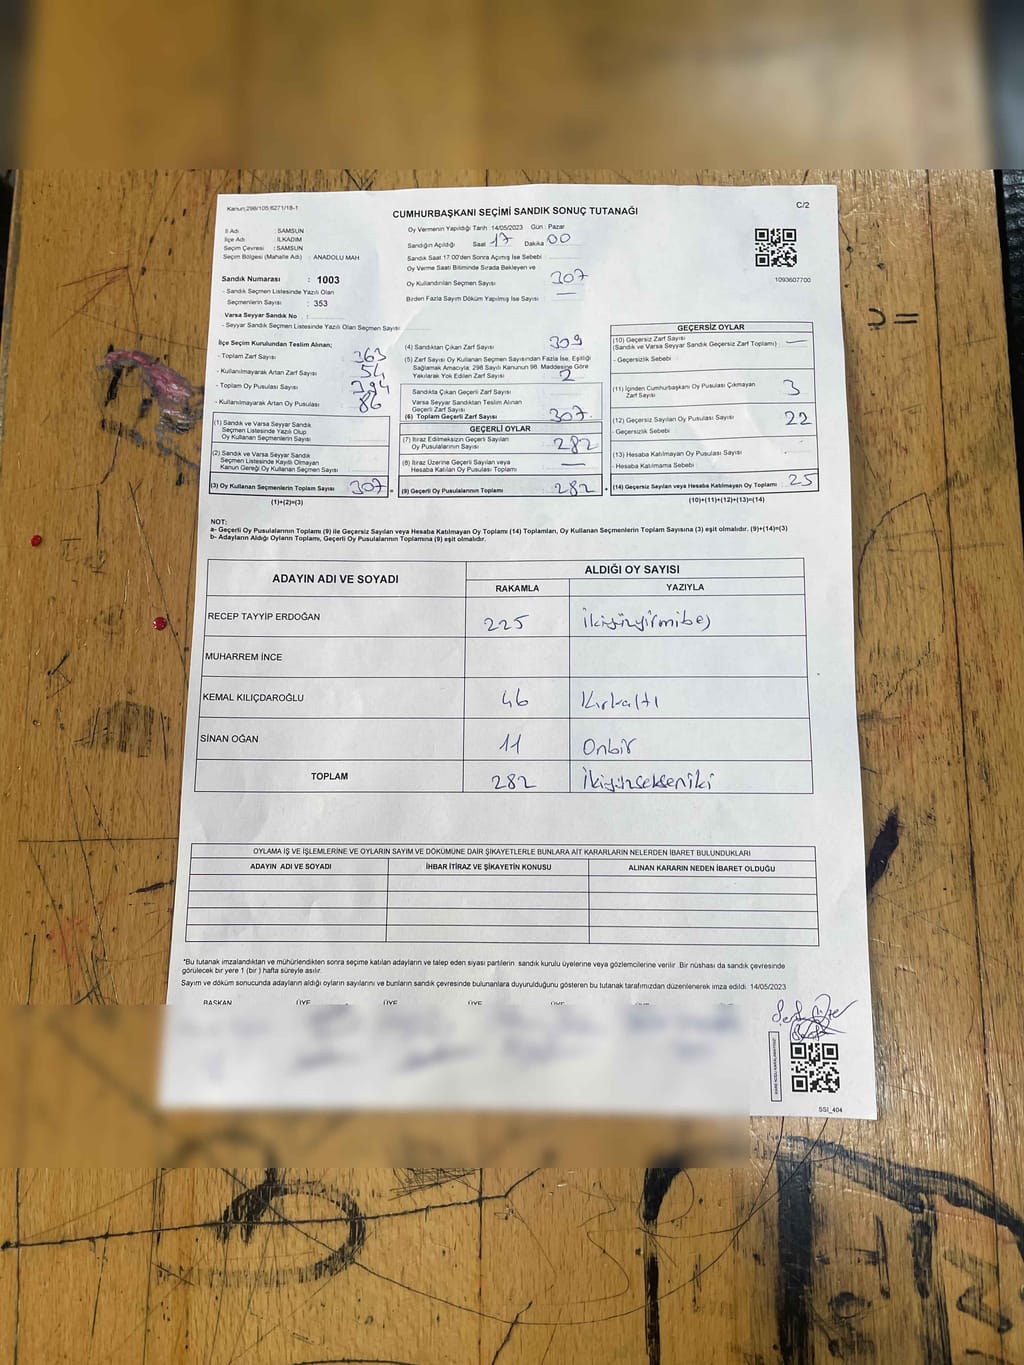 Kanun:298/105;6271/18-1
C/2
CUMHURBAŞKANI SEÇİMİ SANDIK SONUÇ TUTANAĞI
İl Adı : SAMSUN
İlçe Adı : İLKADIM
Seçim Çevresi : SAMSUN
Seçim Bölgesi (Mahalle Adı) : ANADOLU MAH
Sandık Numarası : 1003
- Sandık Seçmen Listesinde Yazılı Olan
Seçmenlerin Sayısı : 353
Varsa Seyyar Sandık No :
- Seyyar Sandık Seçmen Listesinde Yazılı Olan Seçmen Sayısı
Oy Vermenin Yapıldığı Tarih : 14/05/2023 Gün : Pazar
Sandığın Açıldığı Saat 17 Dakika 00
Sandık Saat 17:00'den Sonra Açımış İse Sebebi
Oy Verme Saati Bitiminde Sırada Bekleyen ve
Oy Kullandırılan Seçmen Sayısı 307
Birden Fazla Sayım Döküm Yapılmış İse Sayısı : —
1093607700
İlçe Seçim Kurulundan Teslim Alınan;
- Toplam Zarf Sayısı 363
- Kullanılmayarak Artan Zarf Sayısı 54
- Toplam Oy Pusulası Sayısı 394
- Kullanılmayarak Artan Oy Pusulası 86
(1) Sandık ve Varsa Seyyar Sandık
Seçmen Listesinde Yazılı Olup
Oy Kullanan Seçmenlerin Sayısı
(2) Sandık ve Varsa Seyyar Sandık
Seçmen Listesinde Kayıtlı Olmayan
Kanun Gereği Oy Kullanan Seçmen Sayısı
(3) Oy Kullanan Seçmenlerin Toplam Sayısı 307 =
(1)+(2)=(3)
(4) Sandıktan Çıkan Zarf Sayısı 309
(5) Zarf Sayısı Oy Kullanan Seçmen Sayısından Fazla İse, Eşitliği
Sağlamak Amacıyla; 298 Sayılı Kanunun 98. Maddesine Göre
Yakılarak Yok Edilen Zarf Sayısı 2
Sandıkta Çıkan Geçerli Zarf Sayısı
Varsa Seyyar Sandıktan Teslim Alınan
Geçerli Zarf Sayısı
(6) Toplam Geçerli Zarf Sayısı 307.
GEÇERLİ OYLAR
(7) İtiraz Edilmeksizin Geçerli Sayılan
Oy Pusulalarının Sayısı 282
(8) İtiraz Üzerine Geçerli Sayılan veya
Hesaba Katılan Oy Pusulası Toplamı —
(9) Geçerli Oy Pusulalarının Toplamı 282 +
GEÇERSİZ OYLAR
(10) Geçersiz Zarf Sayısı
(Sandık ve Varsa Seyyar Sandık Geçersiz Zarf Toplamı) —
- Geçersizlik Sebebi
(11) İçinden Cumhurbaşkanı Oy Pusulası Çıkmayan
Zarf Sayısı 3
(12) Geçersiz Sayılan Oy Pusulası Sayısı 22
- Geçersizlik Sebebi
(13) Hesaba Katılmayan Oy Pusulası Sayısı
- Hesaba Katılmama Sebebi
(14) Geçersiz Sayılan veya Hesaba Katılmayan Oy Toplamı 25
(10)+(11)+(12)+(13)=(14)
NOT:
a- Geçerli Oy Pusulalarının Toplamı (9) ile Geçersiz Sayılan veya Hesaba Katılmayan Oy Toplamı (14) Toplamları, Oy Kullanan Seçmenlerin Toplam Sayısına (3) eşit olmalıdır. (9)+(14)=(3)
b- Adayların Aldığı Oyların Toplamı, Geçerli Oy Pusulalarının Toplamına (9) eşit olmalıdır.
ADAYIN ADI VE SOYADI
ALDIĞI OY SAYISI
RAKAMLA YAZIYLA
RECEP TAYYİP ERDOĞAN 225 İkiyüzyirmibeş
MUHARREM İNCE
KEMAL KILIÇDAROĞLU 46 Kırkaltı
SİNAN OĞAN 11 Onbir
TOPLAM 282 İkiyüzsekseniki
OYLAMA İŞ VE İŞLEMLERİNE VE OYLARIN SAYIM VE DÖKÜMÜNE DAİR ŞİKAYETLERLE BUNLARA AİT KARARLARIN NELERDEN İBARET BULUNDUKLARI
ADAYIN ADI VE SOYADI İHBAR İTİRAZ VE ŞİKAYETİN KONUSU ALINAN KARARIN NEDEN İBARET OLDUĞU
*Bu tutanak imzalandıktan ve mühürlendikten sonra seçime katılan adayların ve talep eden siyasi partilerin sandık kurulu üyelerine veya gözlemcilerine verilir. Bir nüshası da sandık çevresinde
görülecek bir yere 1 (bir) hafta süreyle asılır.
Sayım ve döküm sonucunda adayların aldığı oyların sayılarını ve bunların sandık çevresinde bulunanlara duyurulduğunu gösteren bu tutanak tarafımızdan düzenlenerek imza edildi. 14/05/2023
BAŞKAN ÜYE ÜYE ÜYE ÜYE ÜYE
SSI_404